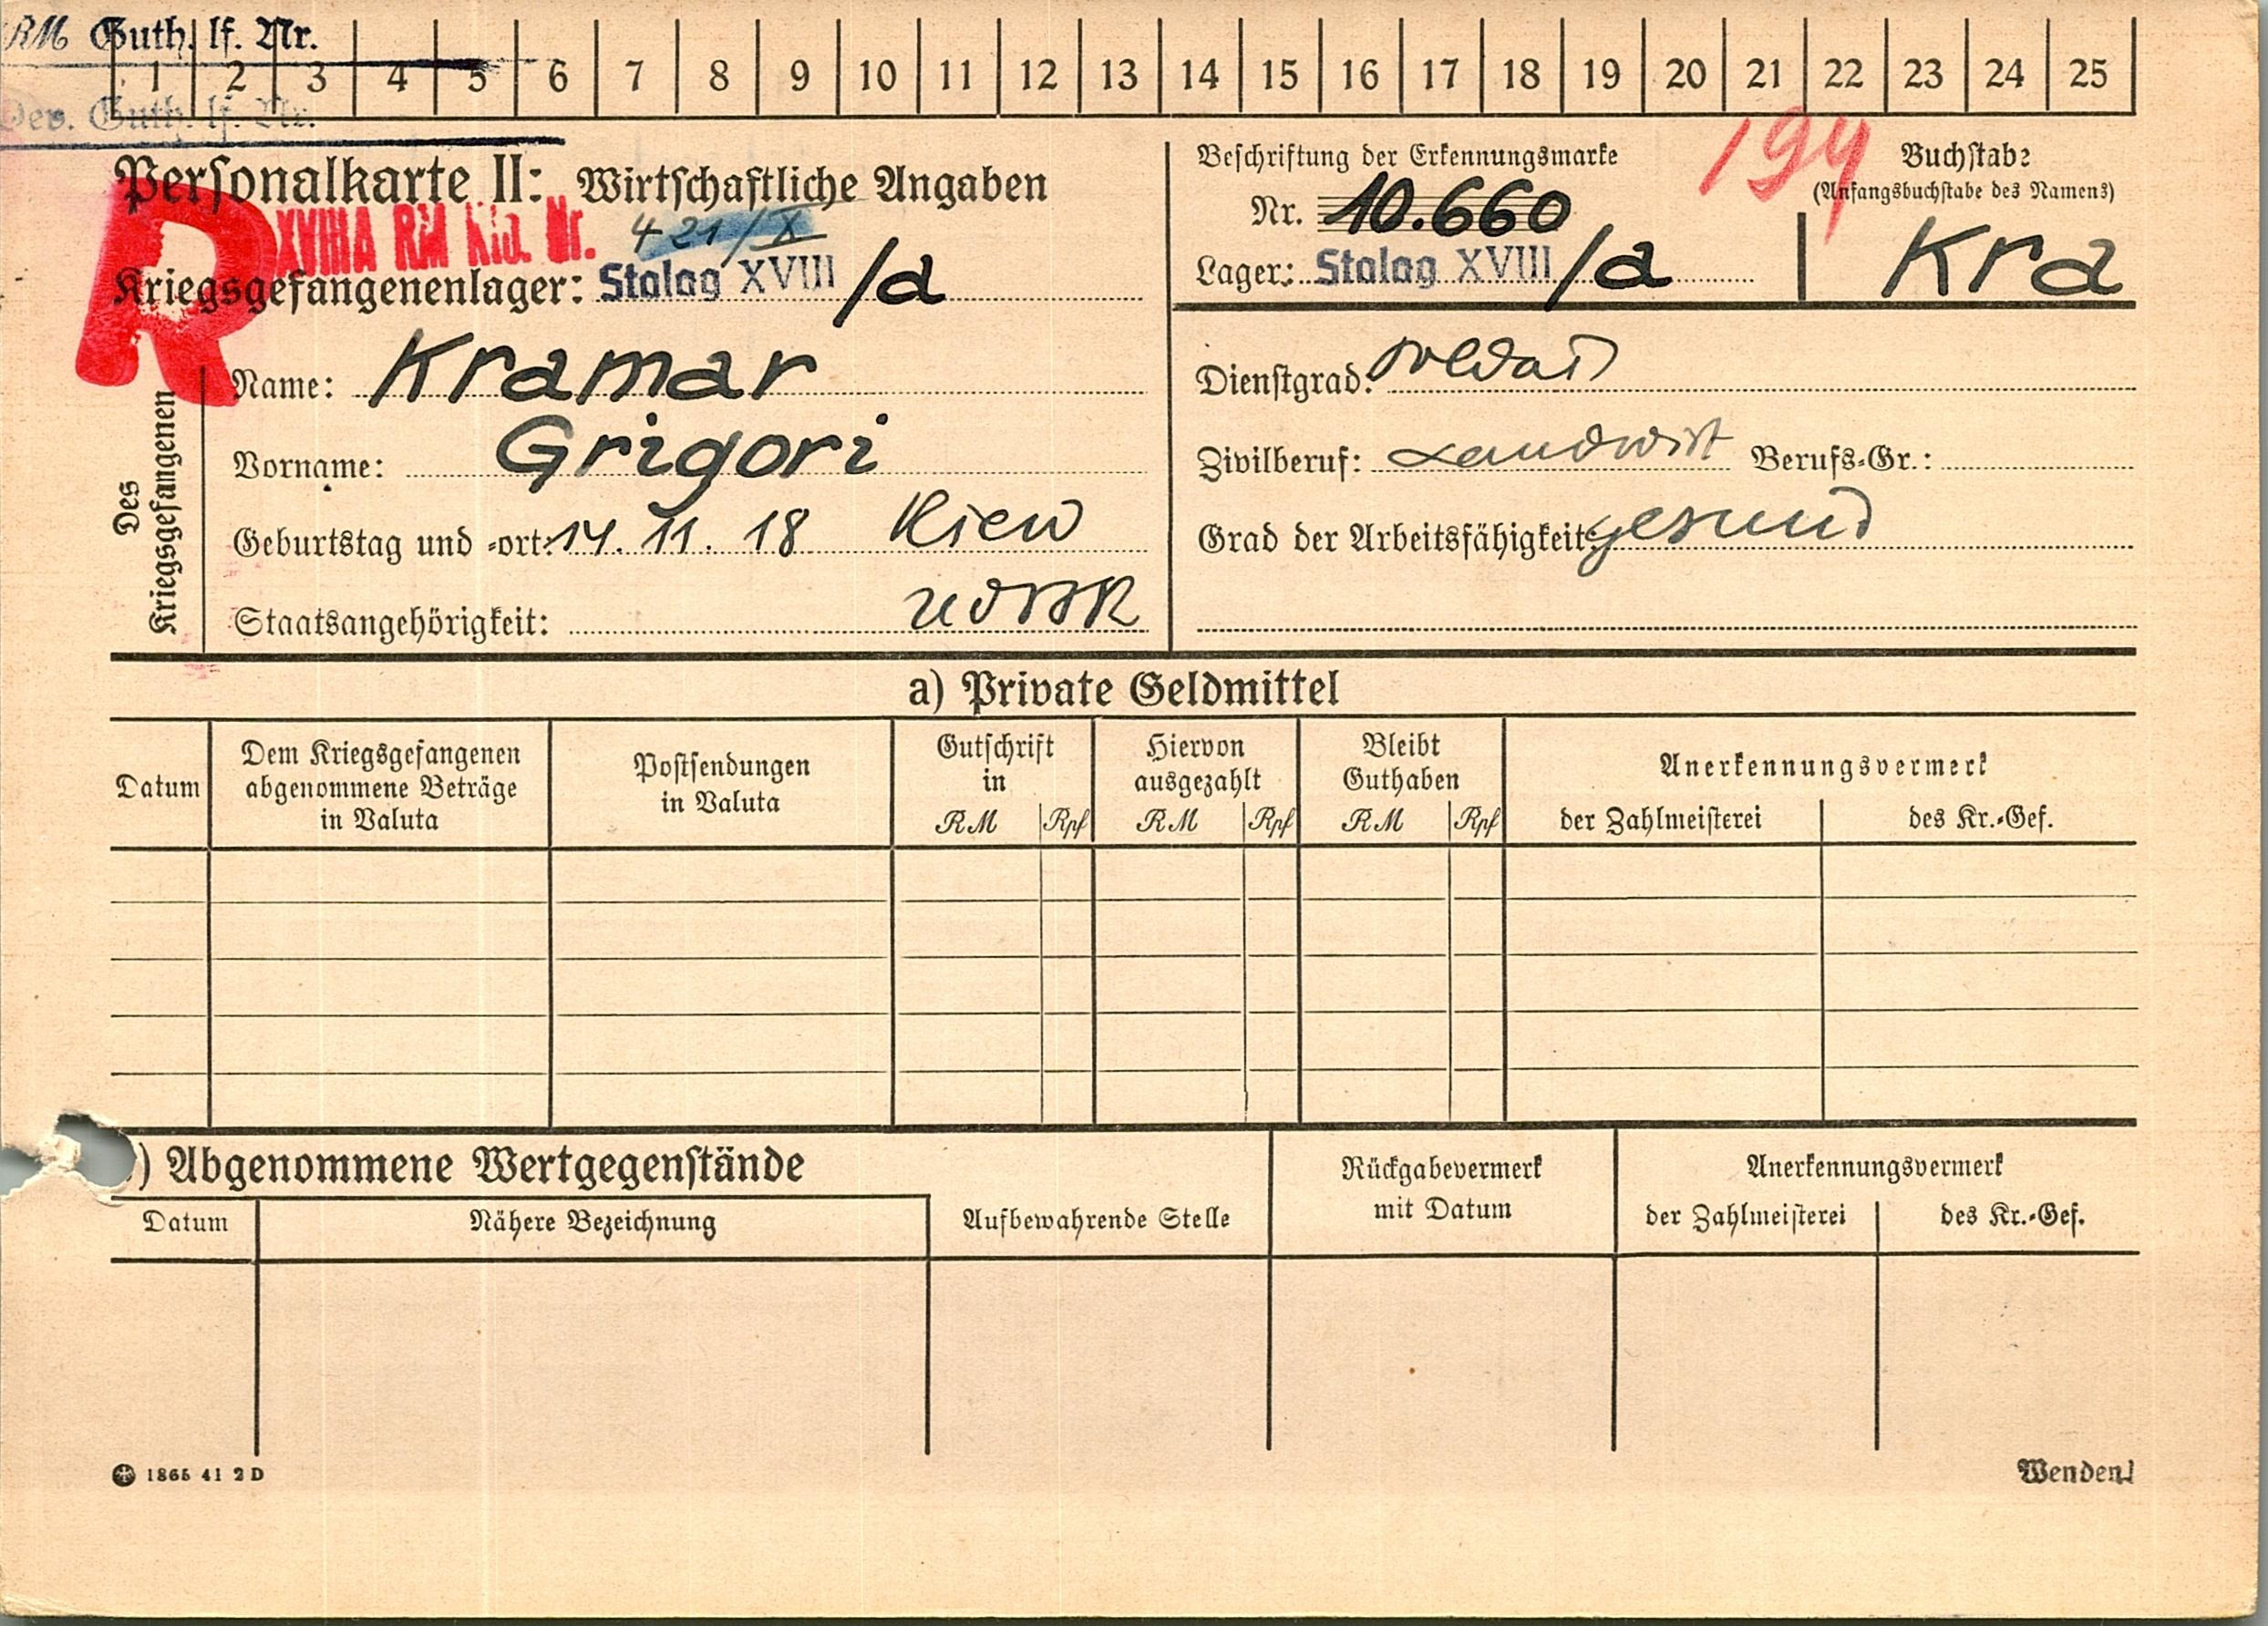 RM Guth. lf. Nr.
1 2 3 4 5 6 7 8 9 10 11 12 13 14 15 16 17 18 19 20 21 22 23 24 25
Dev. Guth. lf. Nr.
Personalkarte II: Wirtschaftliche Angaben
R
XVIIIA RM Kto. Nr. 421/X
Kriegsgefangenenlager: Stalag XVIII /a
Beschriftung der Erkennungsmarke
Nr. 10.660
Lager: Stalag XVIII /a
194
Buchstabe
(Anfangsbuchstabe des Namens)
Kra
Des Kriegsgefangenen
Name: Kramar
Vorname: Grigori
Geburtstag und -ort: 14. 11. 18 Kiew
Staatsangehörigkeit: UdSSR
Dienstgrad: Soldat
Zivilberuf: Landwirt Berufs-Gr.:
Grad der Arbeitsfähigkeit: gesund
a) Private Geldmittel
Datum
Dem Kriegsgefangenen
abgenommene Beträge
in Valuta
Postsendungen
in Valuta
Gutschrift
in
RM Rpf
Hiervon
ausgezahlt
RM Rpf
Bleibt
Guthaben
RM Rpf
Anerkennungsvermerk
der Zahlmeisterei des Kr.-Gef.
) Abgenommene Wertgegenstände
Datum Nähere Bezeichnung
Aufbewahrende Stelle
Rückgabevermerk
mit Datum
Anerkennungsvermerk
der Zahlmeisterei des Kr.-Gef.
1865 41 2 D
Wenden!